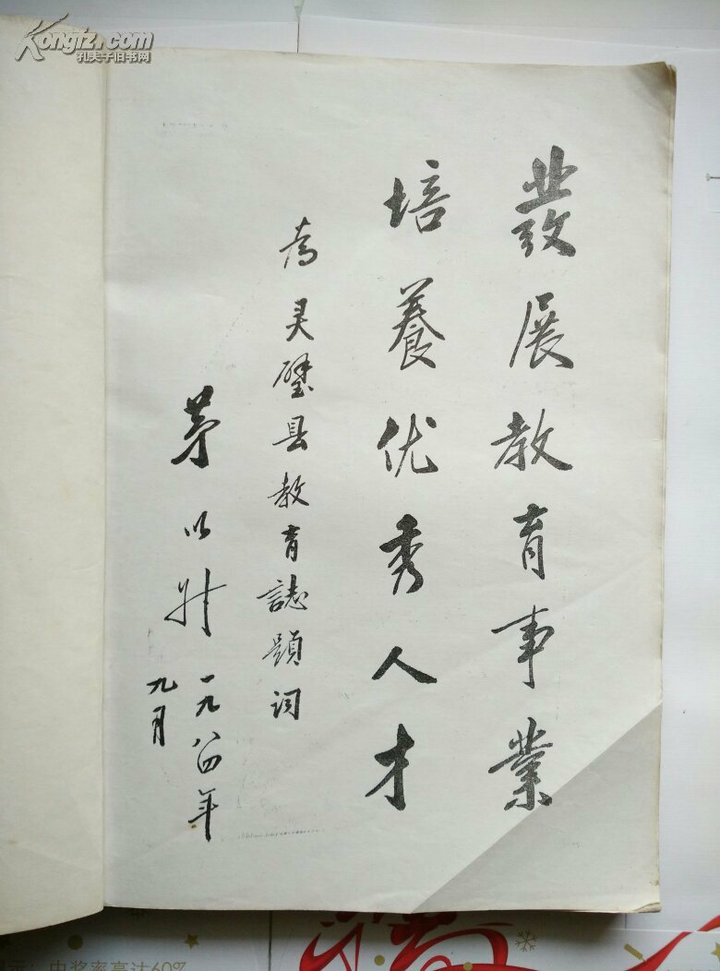 Kongfz.com
孔夫子旧书网
發展教育事業
培養优秀人才
为灵璧县教育誌題词
茅以升
一九八四年
九月
中奖率高达60%